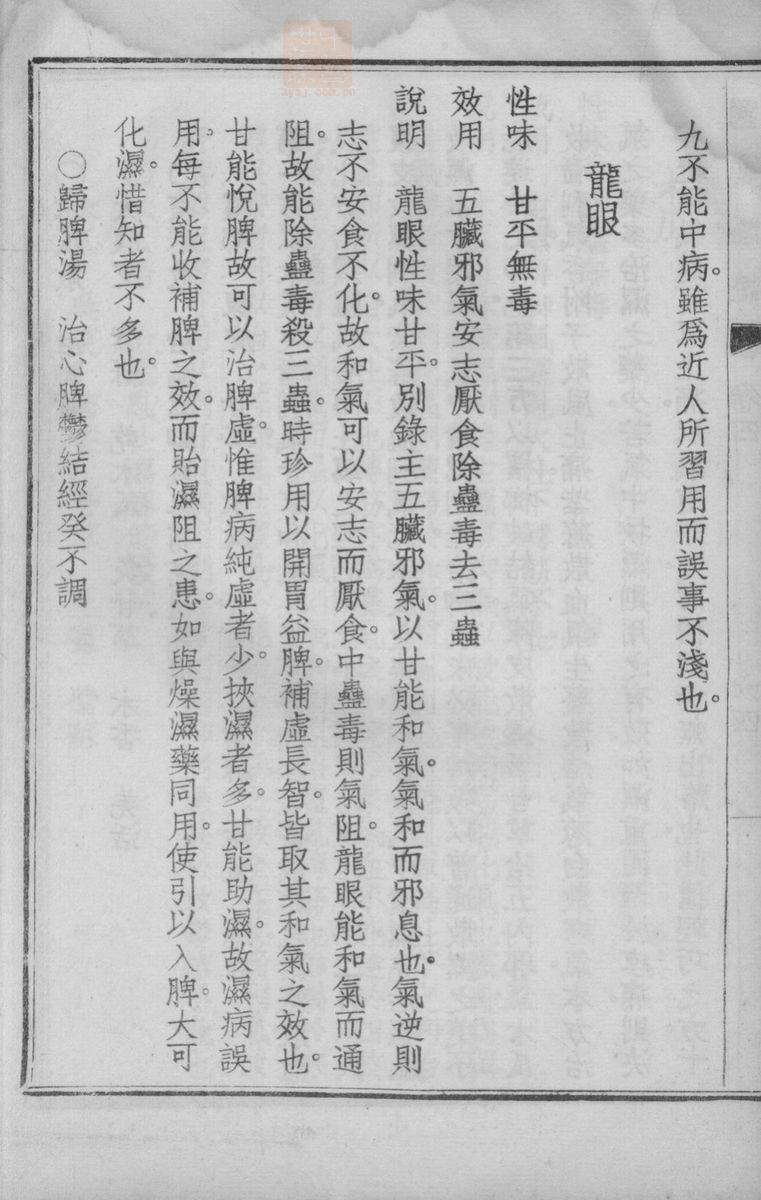 九不能中病。雖爲近人所習用而誤事不淺也。
龍眼
性味　甘平無毒
效用　五臟邪氣安志厭食除蠱毒去三蟲
說明　龍眼性味甘平。別錄主五臟邪氣。以甘能和氣。氣和而邪息也。氣逆則
志不安食不化。故和氣可以安志而厭食。中蠱毒則氣阻。龍眼能和氣而通
阻。故能除蠱毒殺三蟲。時珍用以開胃益脾。補虛長智。皆取其和氣之效也。
甘能悅脾故可以治脾虛。惟脾病純虛者少。挾濕者多。甘能助濕。故濕病誤
用。每不能收補脾之效。而貽濕阻之患。如與燥濕藥同用。使引以入脾。大可
化濕。惜知者不多也。
○歸脾湯　治心脾鬱結經癸不調